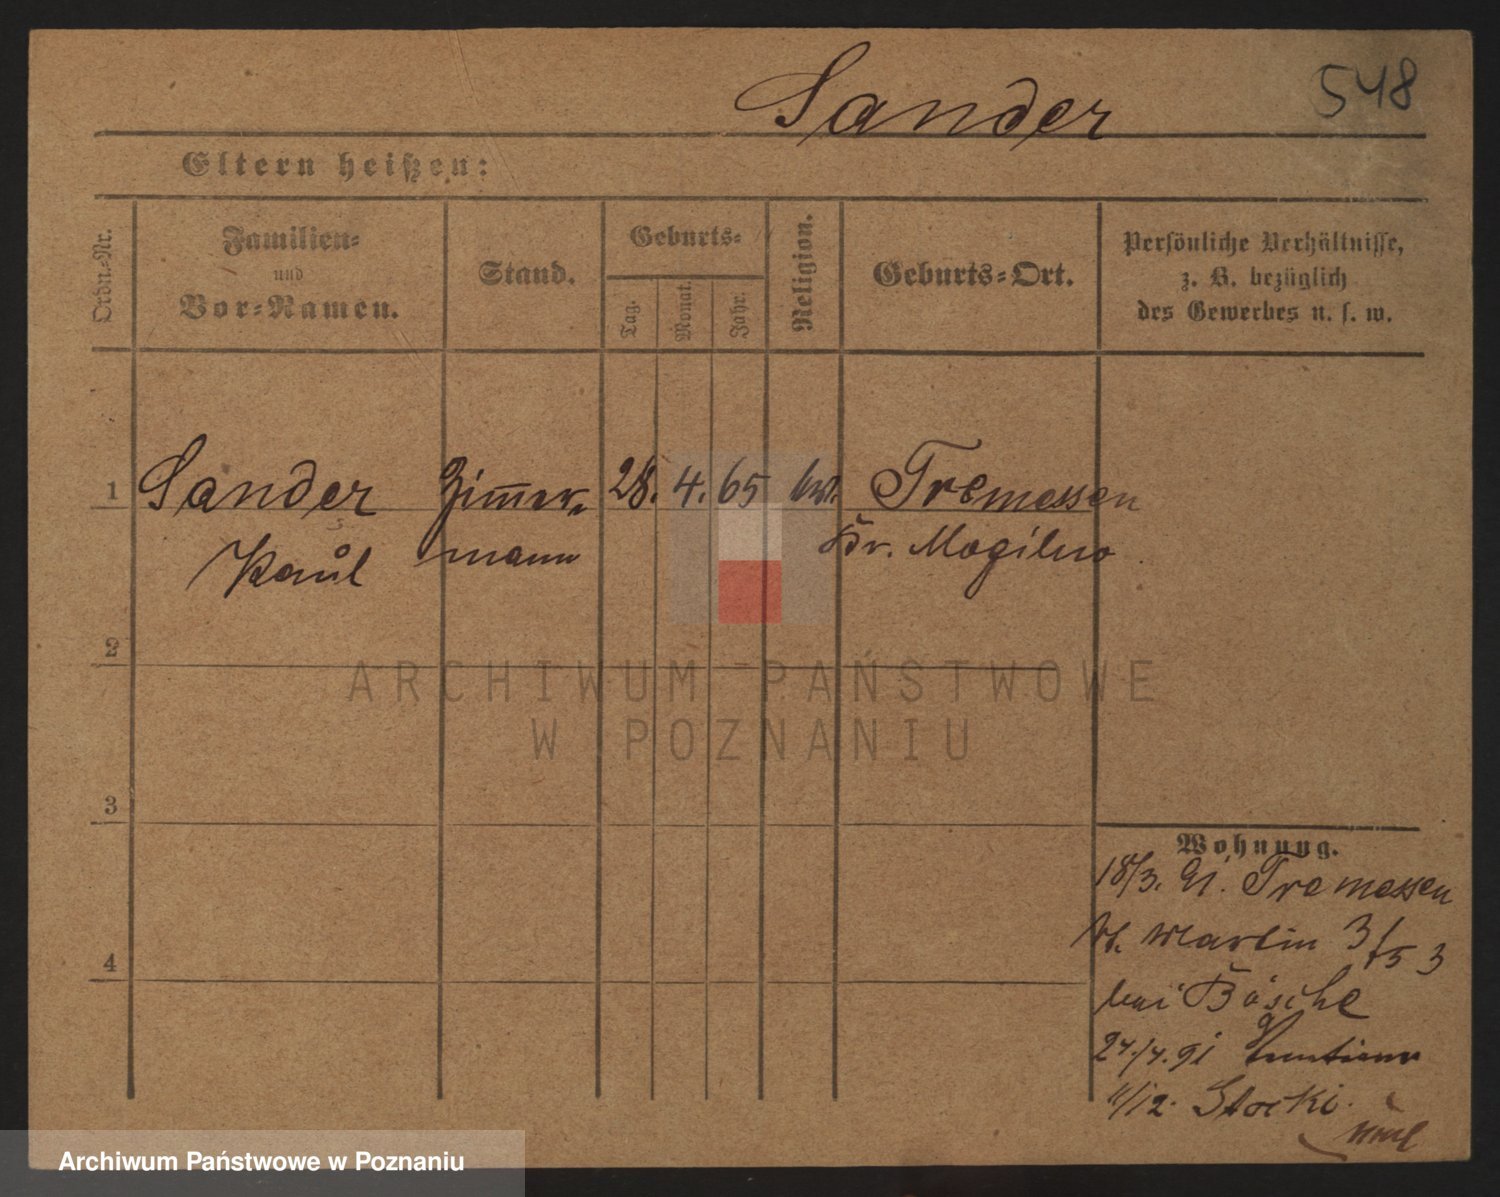 548
Sander
Eltern heißen:
Ordn.-Nr.
Familien-
und
Vor-Namen.
Stand.
Geburts-
Tag.
Monat.
Jahr.
Religion.
Geburts-Ort.
Persönliche Verhältnisse,
z. B. bezüglich
des Gewerbes u. s. w.
1 Sander Zimmer- 28. 4. 65 Tremessen
Paul mann Kr. Mogilno
2
ARCHIWUM PAŃSTWOWE
W POZNANIU
3
Wohnung.
18/3. 91. Tremessen
St. Martin 3
bei
4
24./4. 91
11/12.
Archiwum Państwowe w Poznaniu